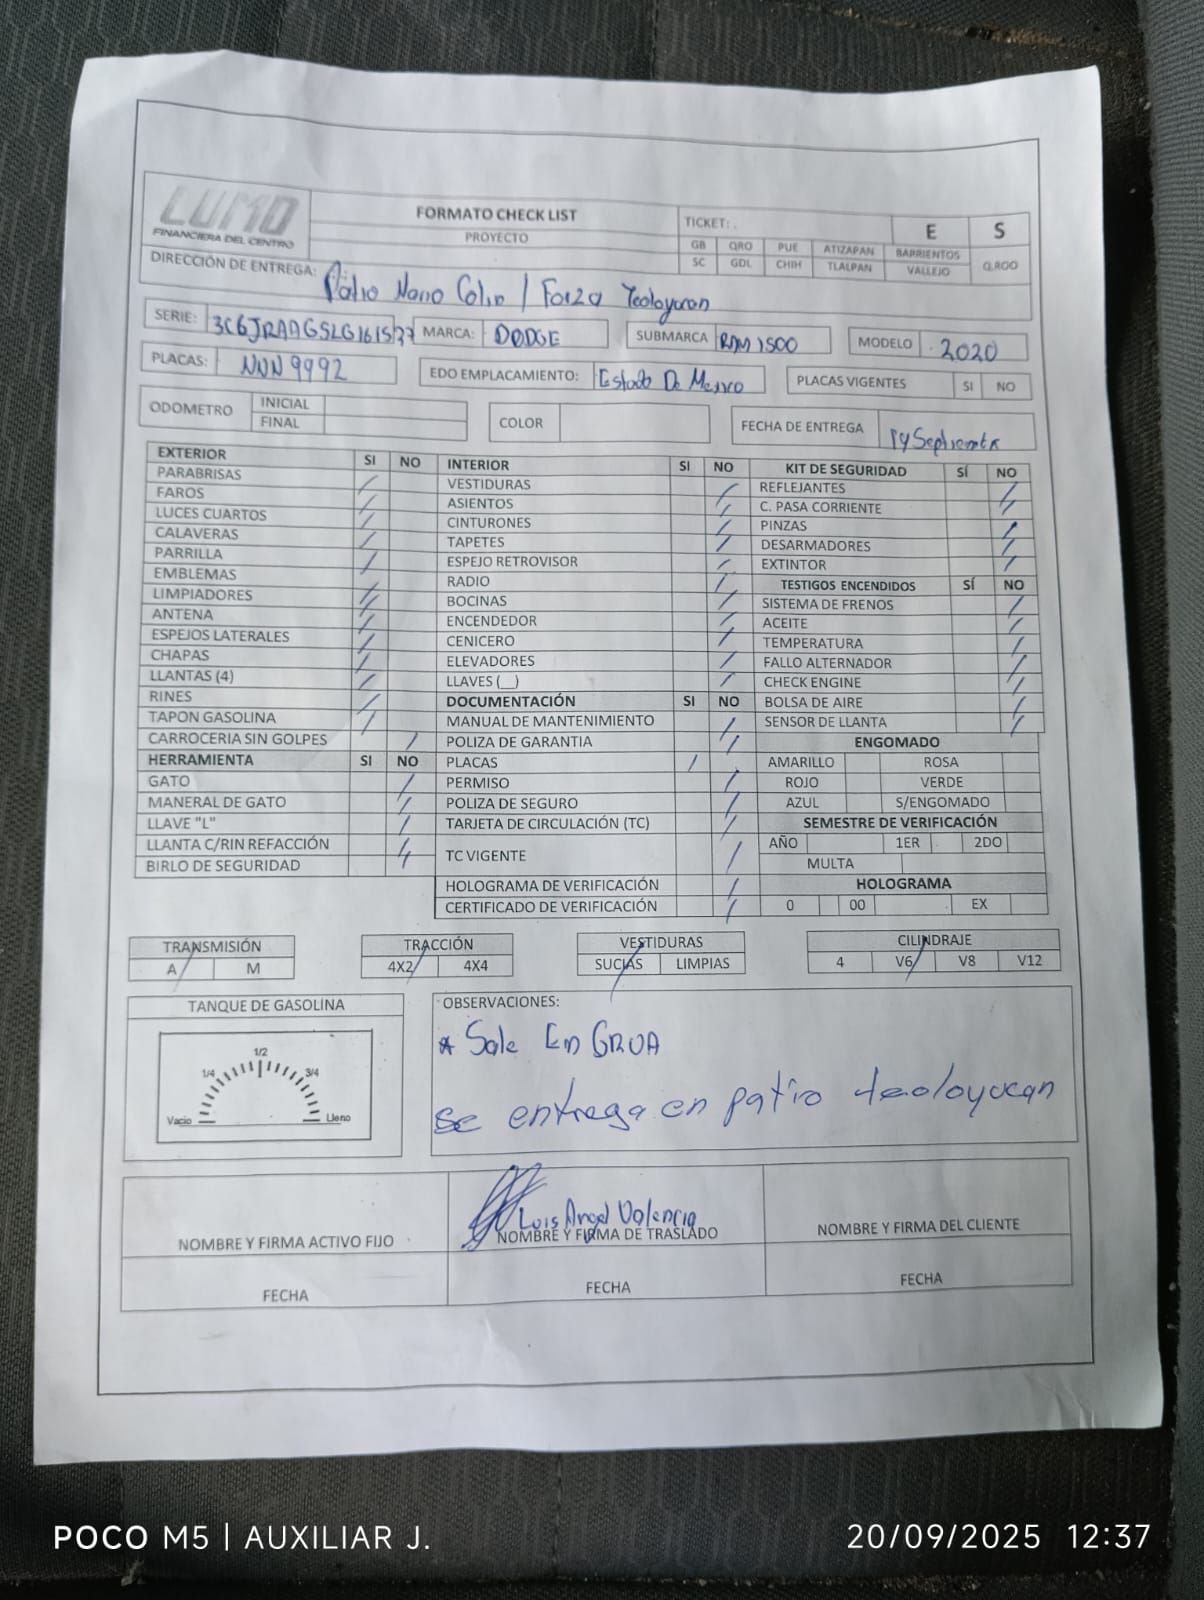 LUMO
FINANCIERA DEL CENTRO
FORMATO CHECK LIST
PROYECTO
TICKET:
E S
GB QRO PUE ATIZAPAN BARRIENTOS
SC GDL CHIH TLALPAN VALLEJO Q.ROO
DIRECCIÓN DE ENTREGA: Patio Nano Colin / Forza Teoloyucan
SERIE: MARCA: DODGE SUBMARCA RAM 1500 MODELO 2020
PLACAS: NUN 9992 EDO EMPLACAMIENTO: Estado De Mexico PLACAS VIGENTES SI NO
ODOMETRO INICIAL
FINAL
COLOR
FECHA DE ENTREGA 19 Septiembre
EXTERIOR SI NO
PARABRISAS
FAROS
LUCES CUARTOS
CALAVERAS
PARRILLA
EMBLEMAS
LIMPIADORES
ANTENA
ESPEJOS LATERALES
CHAPAS
LLANTAS (4)
RINES
TAPON GASOLINA
CARROCERIA SIN GOLPES
HERRAMIENTA SI NO
GATO
MANERAL DE GATO
LLAVE "L"
LLANTA C/RIN REFACCIÓN
BIRLO DE SEGURIDAD
INTERIOR SI NO
VESTIDURAS
ASIENTOS
CINTURONES
TAPETES
ESPEJO RETROVISOR
RADIO
BOCINAS
ENCENDEDOR
CENICERO
ELEVADORES
LLAVES (__)
DOCUMENTACIÓN SI NO
MANUAL DE MANTENIMIENTO
POLIZA DE GARANTIA
PLACAS
PERMISO
POLIZA DE SEGURO
TARJETA DE CIRCULACIÓN (TC)
TC VIGENTE
HOLOGRAMA DE VERIFICACIÓN
CERTIFICADO DE VERIFICACIÓN
KIT DE SEGURIDAD SÍ NO
REFLEJANTES
C. PASA CORRIENTE
PINZAS
DESARMADORES
EXTINTOR
TESTIGOS ENCENDIDOS SÍ NO
SISTEMA DE FRENOS
ACEITE
TEMPERATURA
FALLO ALTERNADOR
CHECK ENGINE
BOLSA DE AIRE
SENSOR DE LLANTA
ENGOMADO
AMARILLO ROSA
ROJO VERDE
AZUL S/ENGOMADO
SEMESTRE DE VERIFICACIÓN
AÑO 1ER 2DO
MULTA
HOLOGRAMA
0 00 EX
TRANSMISIÓN
A M
TRACCIÓN
4X2 4X4
VESTIDURAS
SUCIAS LIMPIAS
CILINDRAJE
4 V6 V8 V12
TANQUE DE GASOLINA
1/4 1/2 3/4
Vacio Lleno
OBSERVACIONES:
* Sale En GRUA
se entrega en patio teoloyucan
Luis Angel Valencia
NOMBRE Y FIRMA ACTIVO FIJO
NOMBRE Y FIRMA DE TRASLADO
NOMBRE Y FIRMA DEL CLIENTE
FECHA FECHA FECHA
POCO M5 | AUXILIAR J.
20/09/2025 12:37